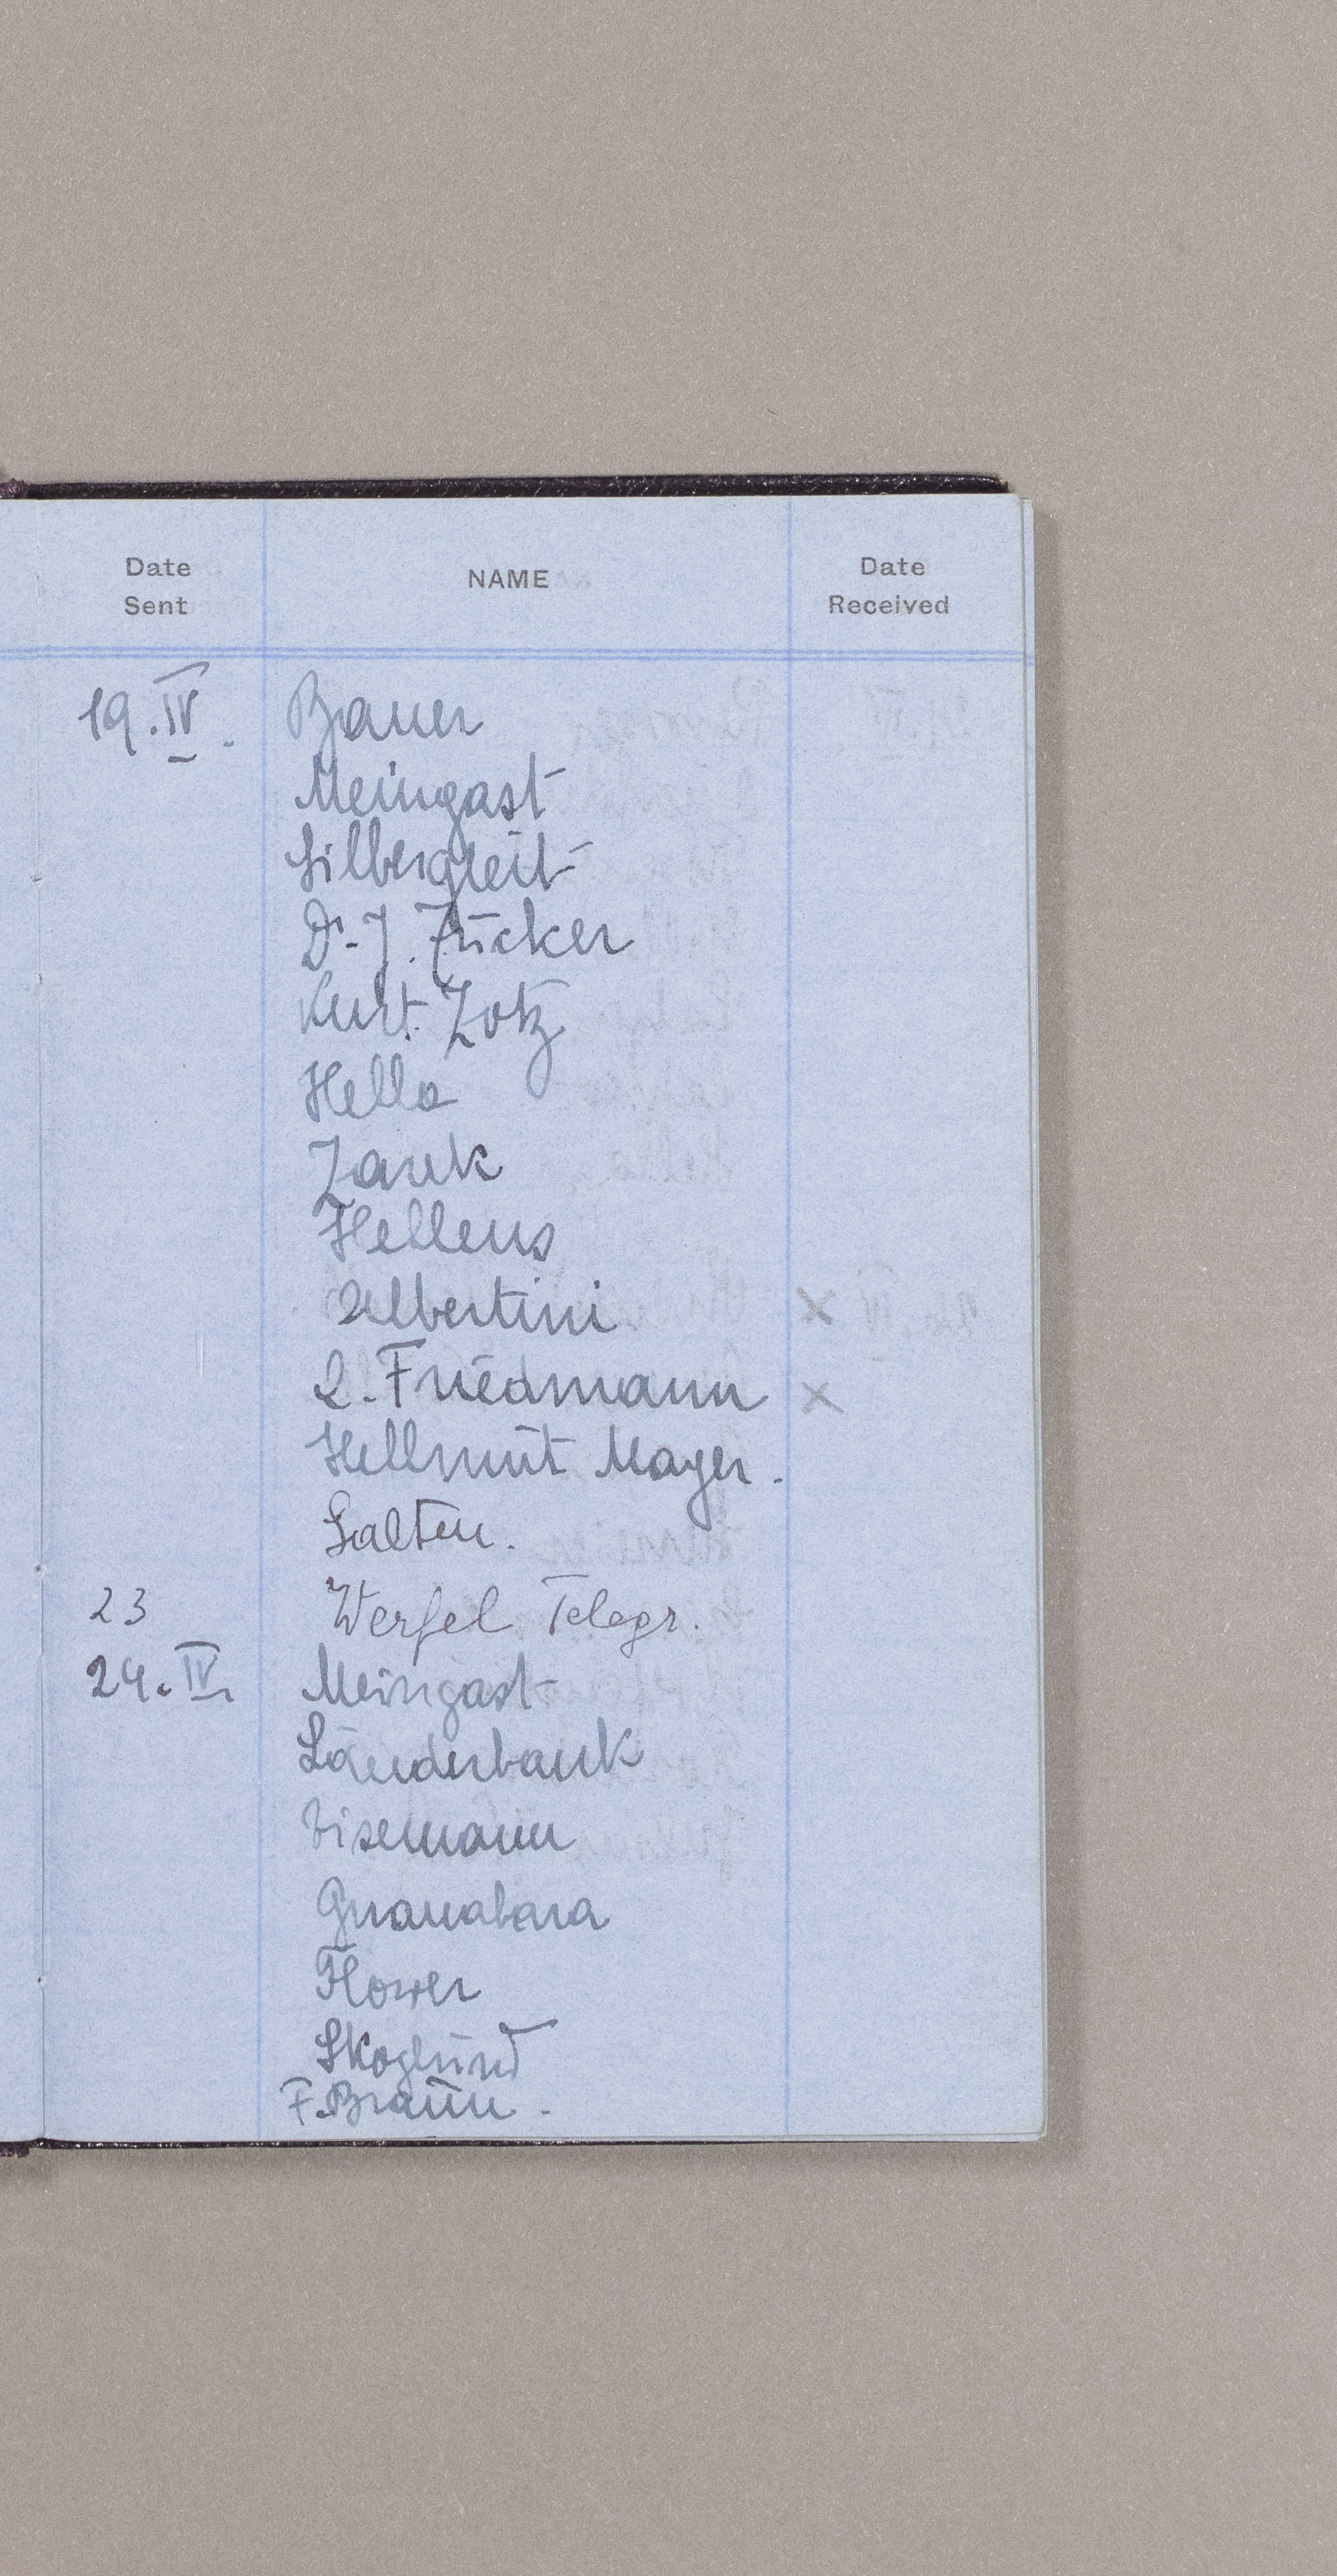 Date Sent NAME Date Received
19.IV. Bauer
Meingast
Silbergleit
Dr. J. Zucker
Kurt Zotz
Hella
Zarek
Hellens
Albertini ×
L. Friedmann ×
Hellmut Mayer.
Salten.
23 Werfel Telegr.
24.IV. Meingast
Länderbank
Eisemann
Guanabara
Flower
Skoglund
F. Braun.